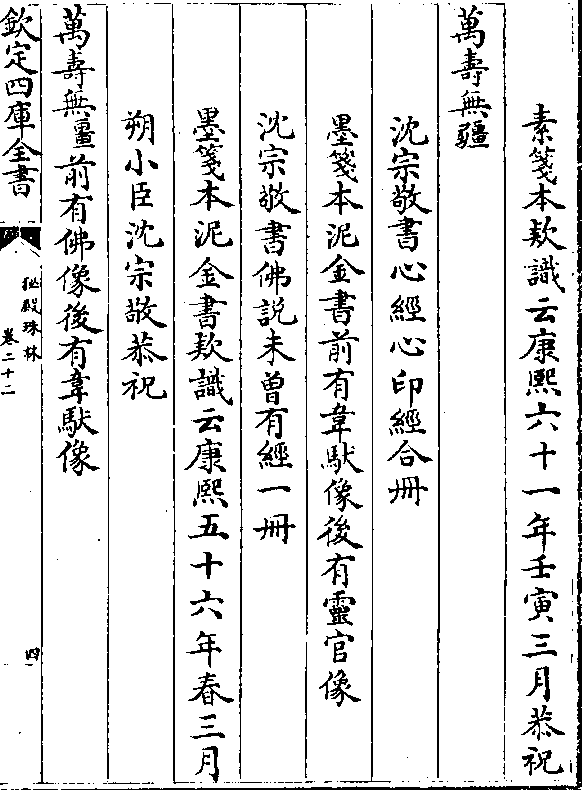 素箋本欵識云康熙六十一年壬寅三月恭祝
萬壽無疆
沈宗敬書心經心印經合冊
墨箋本泥金書前有韋馱像後有靈官像
沈宗敬書佛説未曾有經一冊
墨箋本泥金書欵識云康熙五十六年春三月
朔小臣沈宗敬恭祝
萬壽無疆前有佛像後有韋馱像
欽定四庫全書
秘殿珠林
卷二十二
四